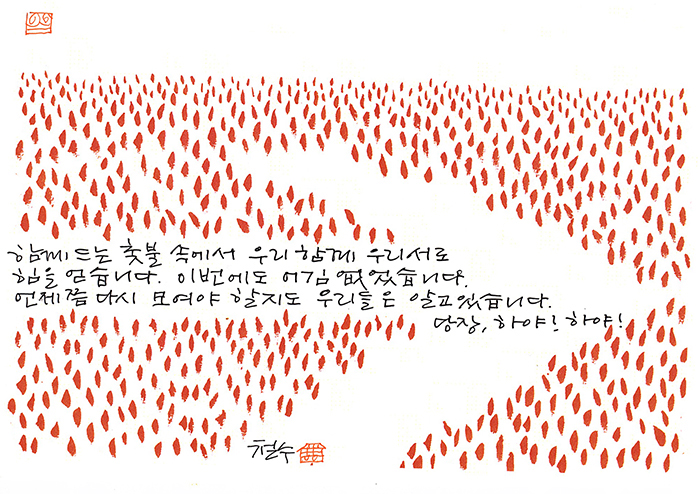 함께 드는 촛불 속에서 우리 함께 우리 서로
힘을 얻습니다. 이번에도 어김 없었습니다.
언제쯤 다시 모여야 할지도 우리들은 알고 있습니다.
당장, 하야! 하야!
철수